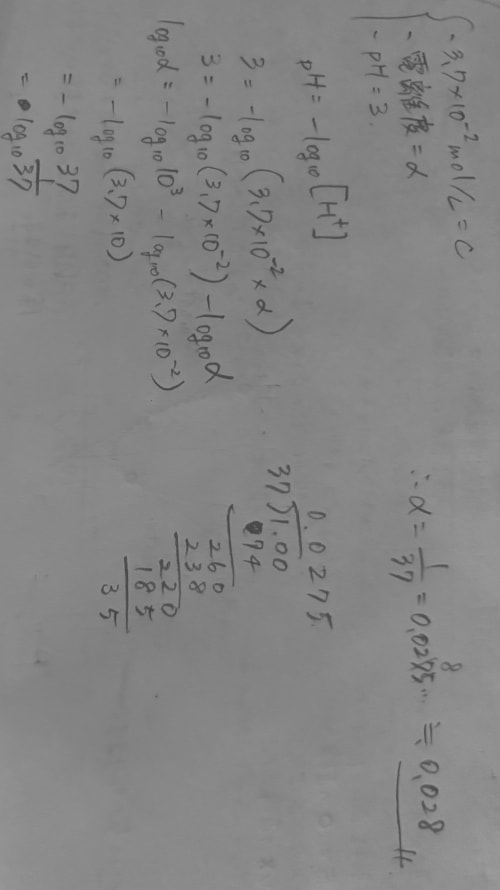 ・3,7×10⁻² mol/L = C
・電離度 = α
・pH = 3.
pH = -log₁₀[H⁺]
3 = -log₁₀(3,7×10⁻² × α)
3 = -log₁₀(3,7×10⁻²) - log₁₀α
log₁₀α = -log₁₀10³ - log₁₀(3,7×10⁻²)
= -log₁₀(3,7×10)
= -log₁₀37
= log₁₀ 1/37
∴ α = 1/37 = 0,0275… ≒ 0,028
8
0.0275
37)1.00
74
260
238
220
185
35